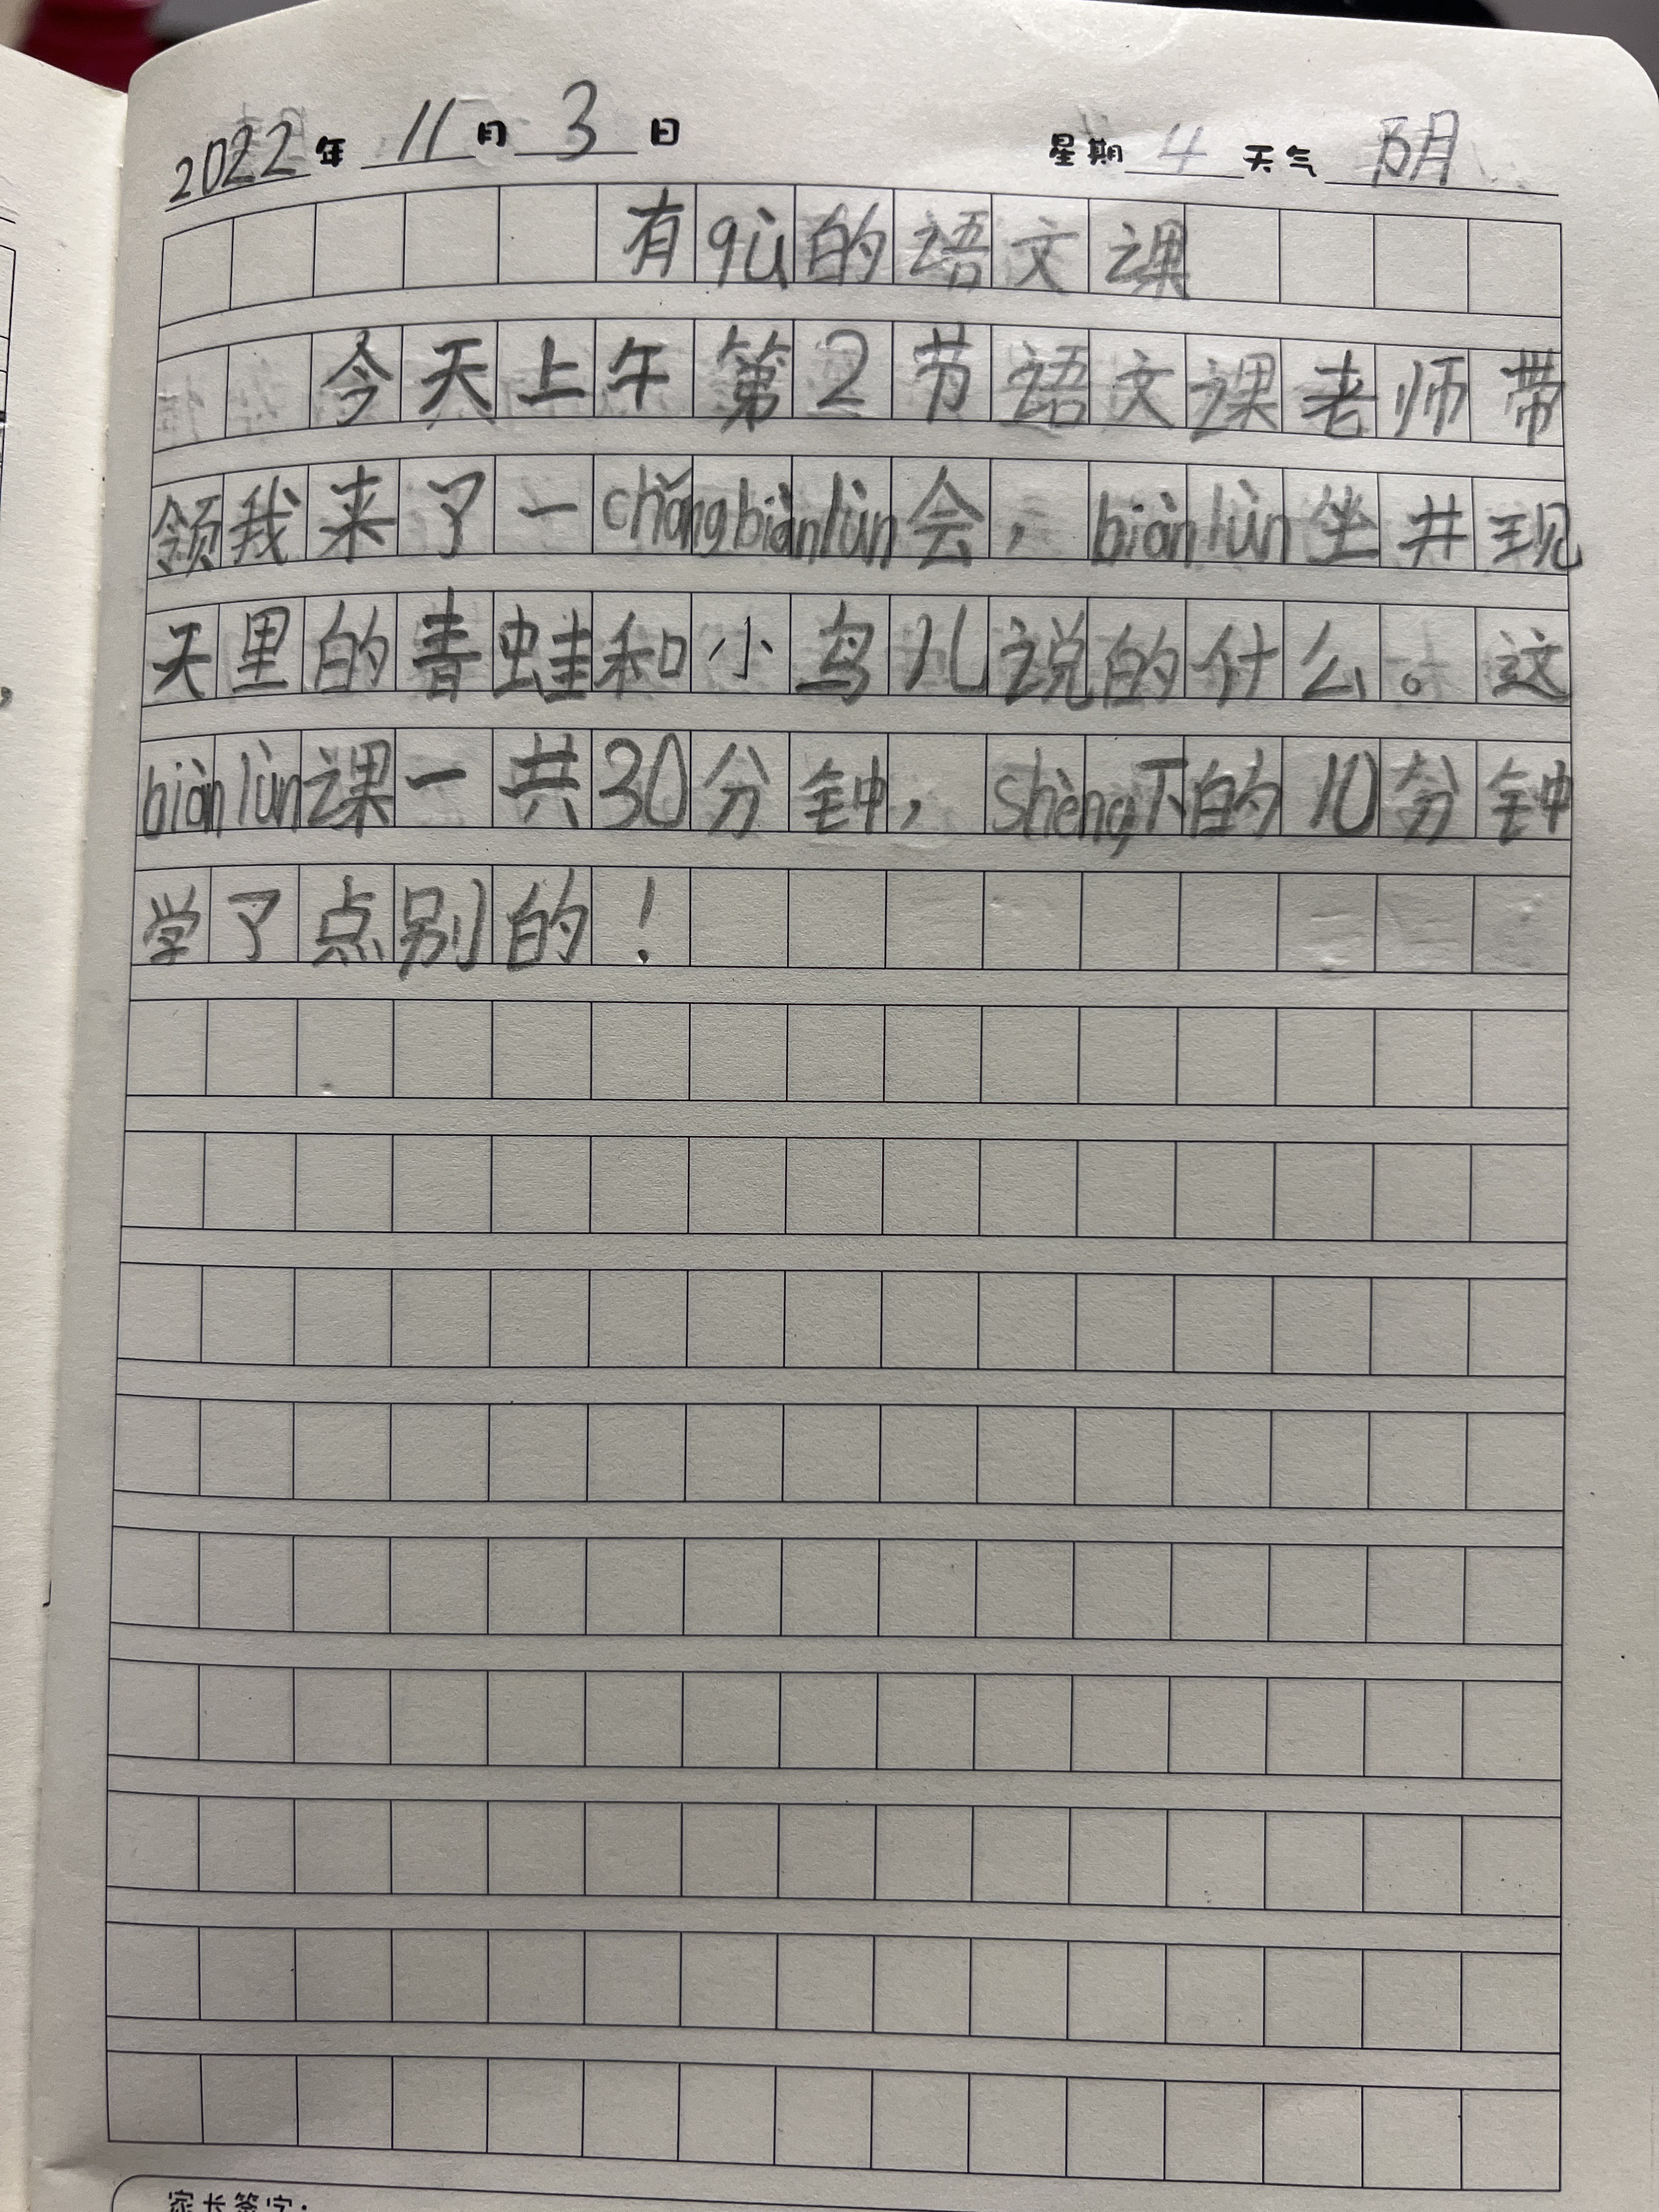 2022年 11月 3日 星期 4 天气 阴
有qù的语文课
今天上午第2节语文课老师带
领我来了一chǎngbiànlùn会，biànlùn坐井现
天里的青蛙和小鸟儿说的什么。这
biànlùn课一共30分钟，shèng下的10分钟
学了点别的！
家长签字：